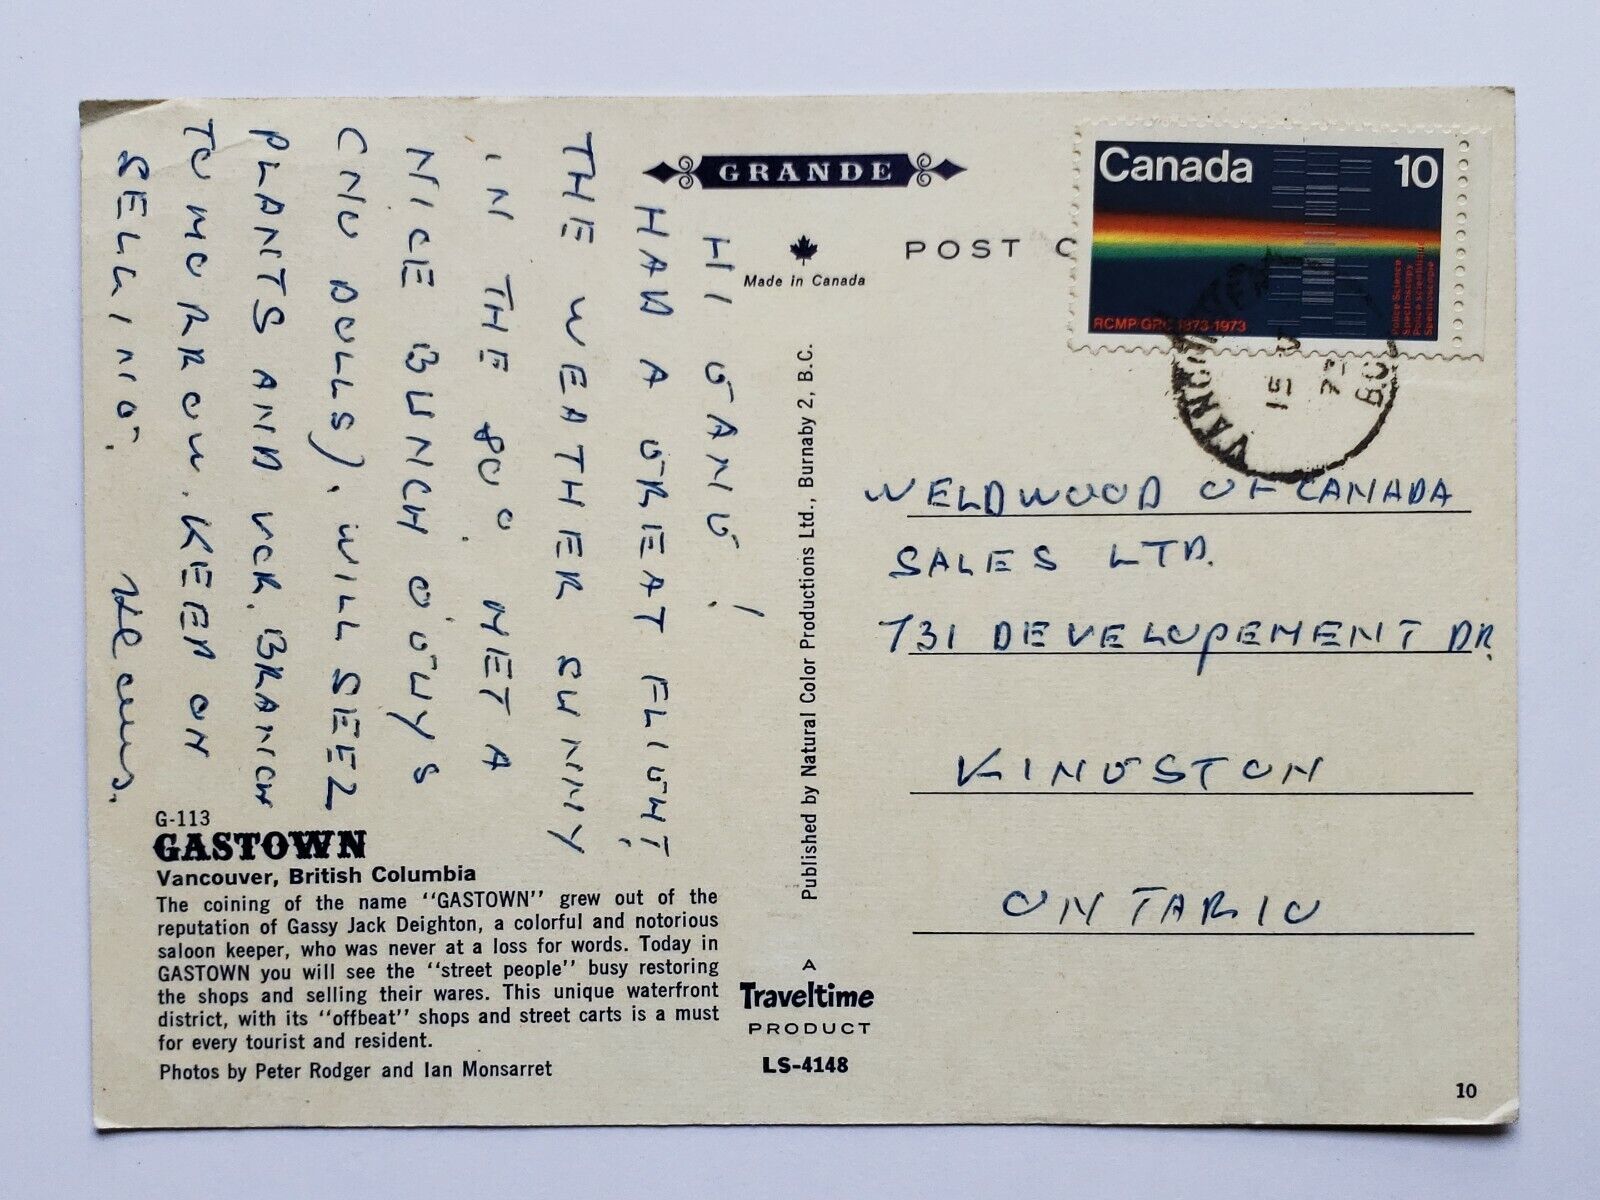 GRANDE
Made in Canada
POST C
Canada 10
RCMP·GRC 1873-1973
Police Science
Spectroscopy
Police Scientifique
Spectroscopie
15
B.C.
HI GANG!
HAD A GREAT FLIGHT,
THE WEATHER SUNNY
IN THE 80°. MET A
NICE BUNCH O'GUYS
(NO DOLLS). WILL SEE 2
PLANTS AND VCR. BRANCH
TOMORROW. KEEP ON
SELLING.
WELDWOOD OF CANADA
SALES LTD.
731 DEVELOPEMENT DR.
KINGSTON
ONTARIO
Published by Natural Color Productions Ltd., Burnaby 2, B.C.
G-113
GASTOWN
Vancouver, British Columbia
The coining of the name "GASTOWN" grew out of the
reputation of Gassy Jack Deighton, a colorful and notorious
saloon keeper, who was never at a loss for words. Today in
GASTOWN you will see the "street people" busy restoring
the shops and selling their wares. This unique waterfront
district, with its "offbeat" shops and street carts is a must
for every tourist and resident.
Photos by Peter Rodger and Ian Monsarret
A
Traveltime
PRODUCT
LS-4148
10